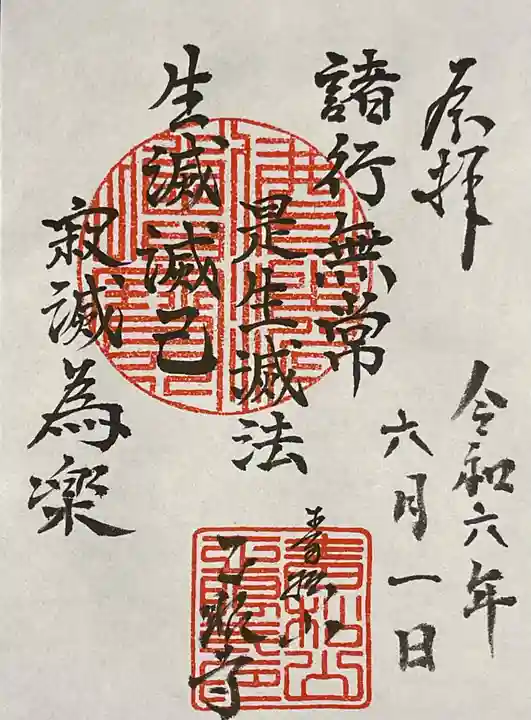 奉拝
令和六年
六月一日
諸行無常
是生滅法
生滅滅己
寂滅為楽
青松山